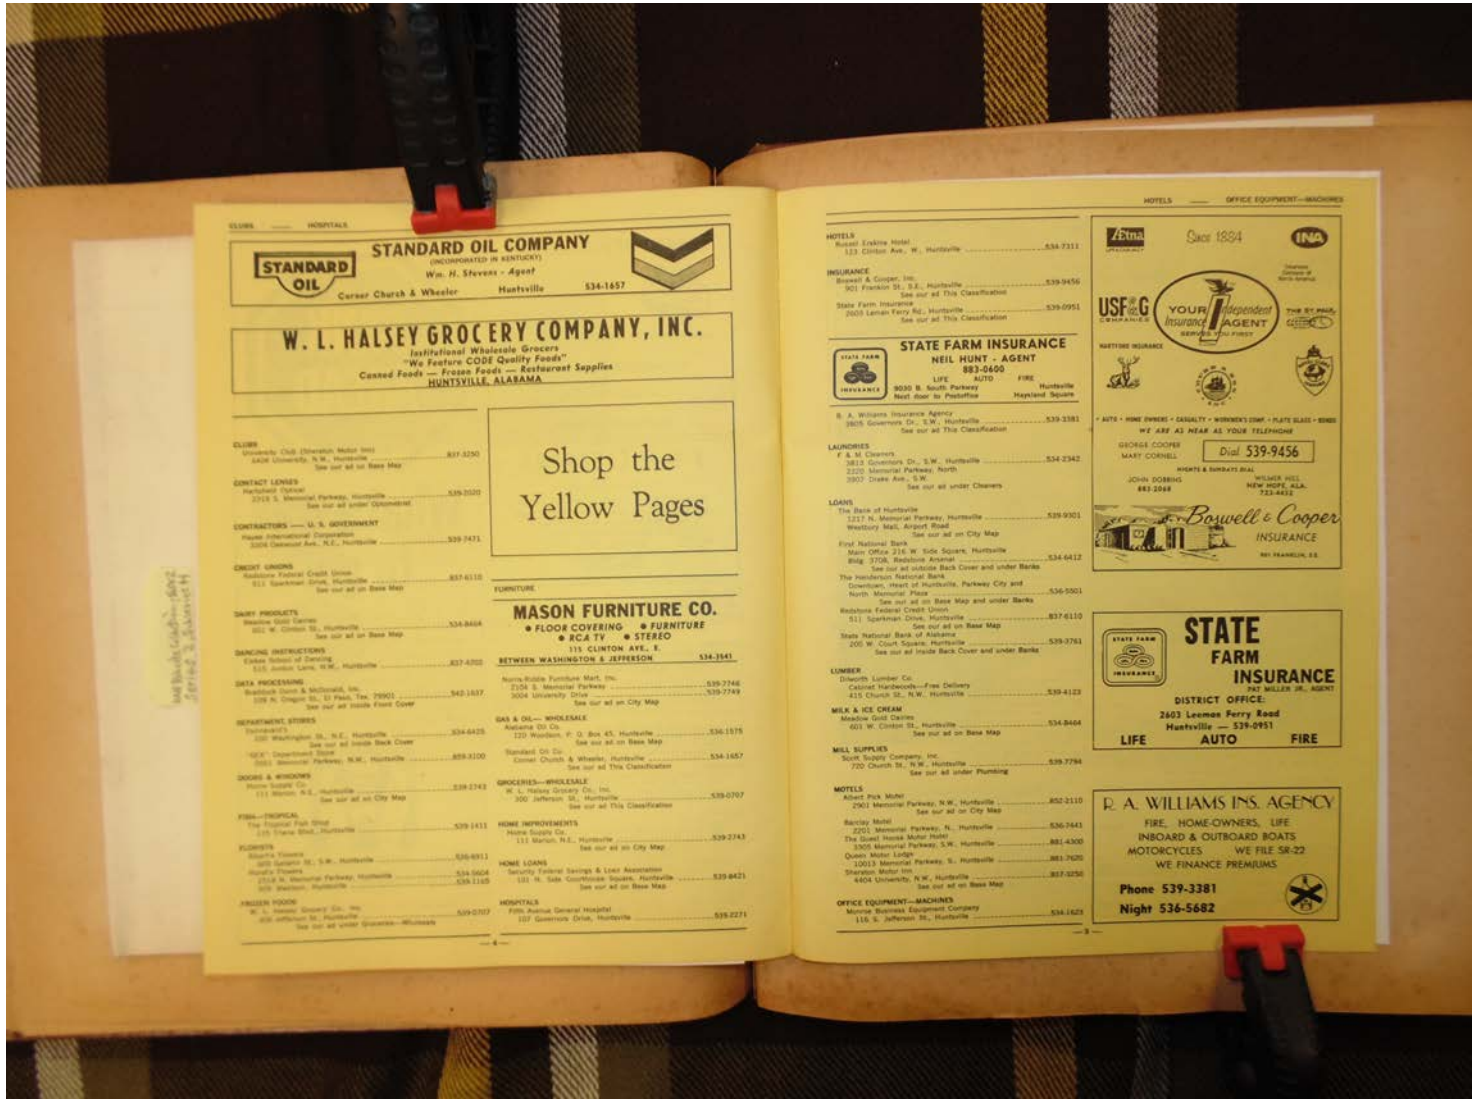 CLUBS ____ HOSPITALS
STANDARD OIL
STANDARD OIL COMPANY
(INCORPORATED IN KENTUCKY)
Wm. H. Stevens - Agent
Corner Church & Wheeler Huntsville 534-1657
W. L. HALSEY GROCERY COMPANY, INC.
Institutional Wholesale Grocers
"We Feature CODE Quality Foods"
Canned Foods — Frozen Foods — Restaurant Supplies
HUNTSVILLE, ALABAMA
CLUBS
University Club (Sheraton Motor Inn)
4404 University, N.W., Huntsville 837-3250
See our ad on Base Map
CONTACT LENSES
Optical
2318 S. Memorial Parkway, Huntsville 539-2020
See our ad under Optometrist
CONTRACTORS — U. S. GOVERNMENT
Hayes International Corporation
Ave., N.E., Huntsville 539-7471
CREDIT UNIONS
Redstone Federal Credit Union
511 Sparkman Drive, Huntsville 837-6110
See our ad on Base Map
DAIRY PRODUCTS
Meadow Gold Dairies
601 W. Clinton St., Huntsville 534-8464
See our ad on Base Map
DANCING INSTRUCTIONS
School of Dancing
Lane, N.W., Huntsville 837-4702
DATA PROCESSING
Braddock Dunn & McDonald, Inc.
N. Oregon St., El Paso, Tex. 79901 542-1637
See our ad Inside Front Cover
DEPARTMENT STORES
Washington St., N.E., Huntsville 534-6425
See our ad inside Back Cover
"GEX" Department Store
Memorial Parkway, N.W., Huntsville 859-3100
DOORS & WINDOWS
Home Supply Co.
111 Marion, N.E., Huntsville 539-2743
See our ad on City Map
FISH—TROPICAL
The Tropical Fish Shop
Triana Blvd., Huntsville 539-1411
FLORISTS
Albert's Flowers
St., S.W., Huntsville 536-6911
Flowers
N. Memorial Parkway, Huntsville 534-5604
Madison, Huntsville 539-1165
FROZEN FOODS
W. L. Halsey Grocery Co., Inc.
Jefferson St., Huntsville 539-0707
See our ad under Groceries—Wholesale
Shop the
Yellow Pages
FURNITURE
MASON FURNITURE CO.
● FLOOR COVERING ● FURNITURE
● RCA TV ● STEREO
115 CLINTON AVE., E.
BETWEEN WASHINGTON & JEFFERSON 534-3541
Norris-Riddle Furniture Mart, Inc.
2104 S. Memorial Parkway 539-7746
3004 University Drive 539-7749
See our ad on City Map
GAS & OIL— WHOLESALE
Alabama Oil Co.
120 Woodson, P. O. Box 45, Huntsville 536-1575
See our ad on Base Map
Standard Oil Co.
Corner Church & Wheeler, Huntsville 534-1657
See our ad This Classification
GROCERIES—WHOLESALE
W. L. Halsey Grocery Co., Inc.
300 Jefferson St., Huntsville 539-0707
See our ad This Classification
HOME IMPROVEMENTS
Home Supply Co.
111 Marion, N.E., Huntsville 539-2743
See our ad on City Map
HOME LOANS
Security Federal Savings & Loan Association
101 N. Side Courthouse Square, Huntsville 539-8421
See our ad on Base Map
HOSPITALS
Fifth Avenue General Hospital
107 Governors Drive, Huntsville 539-2271
— 4 —
HOTELS ____ OFFICE EQUIPMENT—MACHINES
HOTELS
Russell Erskine Hotel
123 Clinton Ave., W., Huntsville 534-7311
INSURANCE
Boswell & Cooper, Inc.
901 Franklin St., S.E., Huntsville 539-9456
See our ad This Classification
State Farm Insurance
2603 Leman Ferry Rd., Huntsville 539-0951
See our ad This Classification
STATE FARM
INSURANCE
STATE FARM INSURANCE
NEIL HUNT - AGENT
883-0600
LIFE AUTO FIRE
8030 B. South Parkway Huntsville
Next door to Postoffice Haysland Square
R. A. Williams Insurance Agency
3805 Governors Dr., S.W., Huntsville 539-3381
See our ad This Classification
LAUNDRIES
F & M Cleaners
3813 Governors Dr., S.W., Huntsville 534-2342
2320 Memorial Parkway, North
3907 Drake Ave., S.W.
See our ad under Cleaners
LOANS
The Bank of Huntsville
1217 N. Memorial Parkway, Huntsville 539-9301
Westbury Mall, Airport Road
See our ad on City Map
First National Bank
Main Office 216 W. Side Square, Huntsville
Bldg. 3708, Redstone Arsenal 534-6412
See our ad outside Back Cover and under Banks
The Henderson National Bank
Downtown, Heart of Huntsville, Parkway City and
North Memorial Plaza 536-5501
See our ad on Base Map and under Banks
Redstone Federal Credit Union
511 Sparkman Drive, Huntsville 837-6110
See our ad on Base Map
State National Bank of Alabama
200 W. Court Square, Huntsville 539-3761
See our ad Inside Back Cover and under Banks
LUMBER
Dilworth Lumber Co.
Cabinet Hardwoods—Free Delivery
415 Church St., N.W., Huntsville 539-4123
MILK & ICE CREAM
Meadow Gold Dairies
601 W. Clinton St., Huntsville 534-8464
See our ad on Base Map
MILL SUPPLIES
Scott Supply Company, Inc.
720 Church St., N.W., Huntsville 539-7794
See our ad under Plumbing
MOTELS
Albert Pick Motel
2901 Memorial Parkway, N.W., Huntsville 852-2110
See our ad on City Map
Barclay Motel
2201 Memorial Parkway, N., Huntsville 536-7441
The Guest House Motor Hotel
3305 Memorial Parkway, S.W., Huntsville 881-4300
Queen Motor Lodge
10013 Memorial Parkway, S., Huntsville 881-7620
Sheraton Motor Inn
4404 University, N.W., Huntsville 837-3250
See our ad on Base Map
OFFICE EQUIPMENT—MACHINES
Monroe Business Equipment Company
116 S. Jefferson St., Huntsville 534-1623
Ætna
Since 1884
INA
Insurance
Company of
North America
USF&G
COMPANIES
YOUR Independent
Insurance AGENT
SERVES YOU FIRST
THE ST. PAUL
HARTFORD INSURANCE
• AUTO • HOME OWNERS • CASUALTY • WORKMEN'S COMP. • PLATE GLASS • BONDS
WE ARE AS NEAR AS YOUR TELEPHONE
GEORGE COOPER
MARY CORNELL
Dial 539-9456
NIGHTS & SUNDAYS DIAL
JOHN DOBBINS
883-2068
WILMER HILL
NEW HOPE, ALA.
723-4452
Boswell & Cooper
INSURANCE
901 FRANKLIN, S.E.
STATE FARM
INSURANCE
STATE
FARM
INSURANCE
PAT MILLER JR., AGENT
DISTRICT OFFICE:
2603 Leeman Ferry Road
Huntsville — 539-0951
LIFE AUTO FIRE
R. A. WILLIAMS INS. AGENCY
FIRE, HOME-OWNERS, LIFE
INBOARD & OUTBOARD BOATS
MOTORCYCLES WE FILE SR-22
WE FINANCE PREMIUMS
Phone 539-3381
Night 536-5682